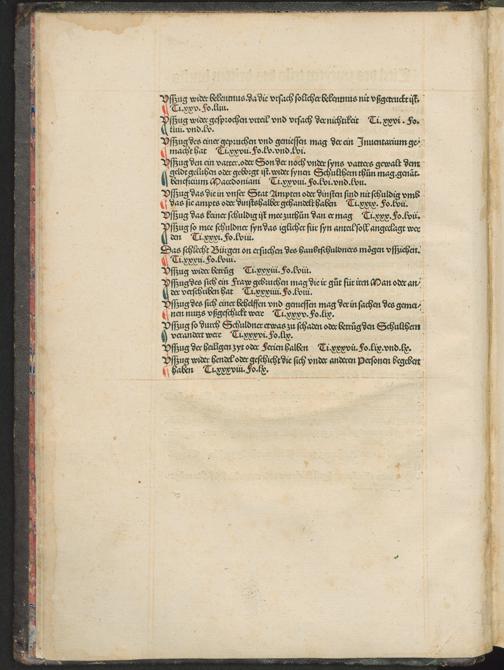 Uſſzug wider bekentnus. da die vrſach ſolicher bekentnus nit vßgetruckt iſt.
Ti. xxv. Fo. liiii.
Uſſzug wider geſprochen vrteil vnd vrſach der nichtikeit Ti. xxvi. Fo.
liiii. vnd. lv.
Uſſzug des einer gepruchen vnd genieſſen mag der ein Inuentarium ge-
macht hat Ti. xxvii. Fo. lv. vnd. lvi.
Uſſzug den ein vatter. oder Son der noch vnder ſyns vatters gewalt dem
geldt gelihen oder geborgt iſt. wider ſynen Schulthern thun mag. genāt.
beneficium Macedoniani Ti. xxviii. Fo. lvi. vnd. lvii.
Uſſzug das die in vnſer Stat Ampten oder dinſten ſind nit ſchuldig vmb
das ſie ampts oder dinſtshalber gehandelt haben Ti. xxix. Fo. lvii.
Uſſzug das keiner ſchuldig iſt mee zuthun dan er mag Ti. xxx. Fo. lvii.
Uſſzug ſo mee ſchuldner ſyn das iglicher für ſyn anteil ſoll angeclagt wer
den Ti. xxxi. Fo. lviii.
Das ſchlecht Bürgen on erſuchen des haubtſchuldners mögen vſſziehen.
Ti. xxxii. Fo. lviii.
Uſſzug wider betrüg Ti. xxxiii. Fo. lviii.
Uſſzug des ſich ein Fraw gebruchen mag die ir gůt für iren Man oder an-
der verſchriben hat Ti. xxxiiii. Fo. lviii.
Uſſzug des ſich einer behelffen vnd genieſſen mag der in ſachen des gemei-
nen nutzs vßgeſchickt were Ti. xxxv. Fo. lix.
Uſſzug ſo durch Schuldner etwas zu ſchaden oder betrüg den Schulthern
verandert were Ti. xxxvi. Fo. lix.
Uſſzug der heiligen zyt oder Ferien halben Ti. xxxvii. Fo. lix. vnd. lx.
Uſſzug wider hendel oder geſchicht die ſich vnder anderen Perſonen begeben
haben Ti. xxxviii. Fo. lx.